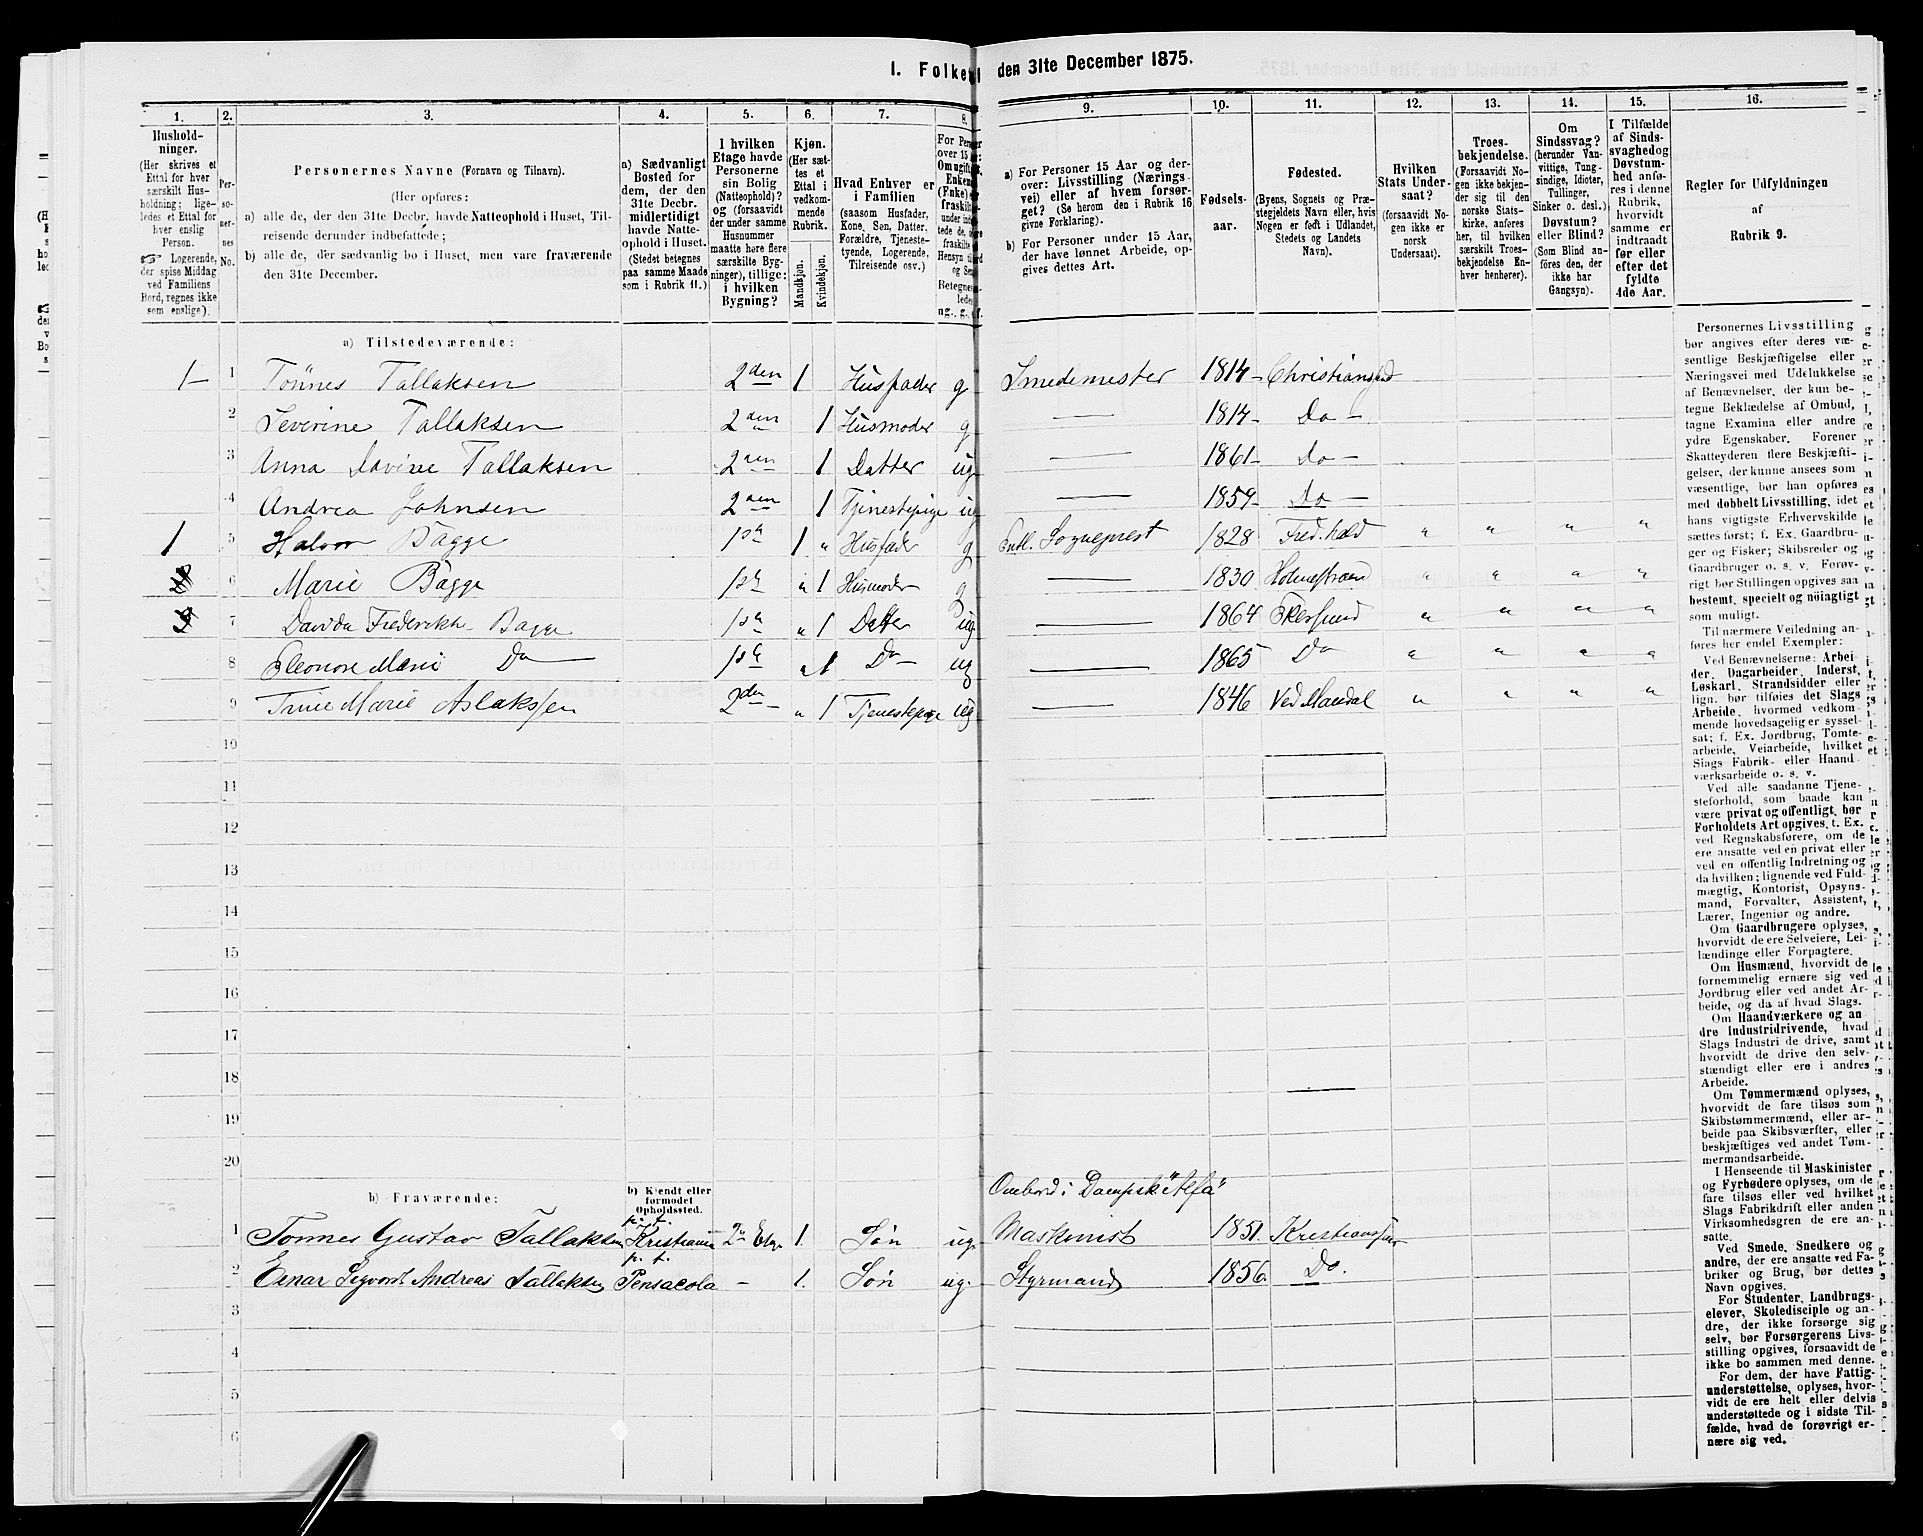 1. Folketal den 31te December 1875.
1. 2. 3. 4. 5. 6. 7. 8. 9. 10. 11. 12. 13. 14. 15. 16.
Hushold-
ninger.
(Her skrives et
Ettal for hver
særskilt Hus-
holdning; lige-
ledes et Ettal for
hver enslig
Person.
☞ Logerende,
der spise Middag
ved Familiens
Bord, regnes ikke
som enslige).
Per-
so-
ner-
nes
No.
Personernes Navne (Fornavn og Tilnavn).
(Her opføres:
a) alle de, der den 31te Decbr. havde Natteophold i Huset, Til-
reisende derunder indbefattede;
b) alle de, der sædvanlig bo i Huset, men vare fraværende
den 31te December.
a) Sædvanligt
Bosted for
dem, der den
31te Decbr.
midlertidigt
havde Natte-
ophold i Huset.
(Stedet betegnes
paa samme Maade
som i Rubrik 11.)
I hvilken
Etage havde
Personerne
sin Bolig
(Natteophold)?
og (forsaavidt
der under samme
Husnummer
maatte høre flere
særskilte Byg-
ninger), tillige:
i hvilken
Bygning?
Kjøn.
(Her sæt-
tes et
Ettal i
vedkom-
mende
Rubrik.
Mandkjøn.
Kvindekjøn.
Hvad Enhver er
i Familien
(saasom Husfader,
Kone, Søn, Datter,
Forældre, Tjeneste-
tyende, Logerende,
Tilreisende osv.)
a) For Personer 15 Aar og der-
over: Livsstilling (Nærings-
vei) eller af hvem forsør-
get? (Se herom den i Rubrik 16
givne Forklaring).
b) For Personer under 15 Aar,
der have lønnet Arbeide, op-
gives dettes Art.
Fødsels-
aar.
Fødested.
(Byens, Sognets og Præ-
stegjeldets Navn eller, hvis
Nogen er født i Udlandet,
Stedets og Landets
Navn).
Hvilken
Stats Under-
saat?
(forsaavidt No-
gen ikke er
norsk
Undersaat).
Troes-
bekjendelse.
(Forsaavidt No-
gen ikke bekjen-
der sig til den
norske Stats-
kirke, anføres
her, til hvilken
særskilt Troes-
bekjendelse En-
hver henhører).
Om
Sindssvag?
(herunder Van-
vittige, Tung-
sindige, Idioter,
Tullinger,
Sinker o. desl.)
Døvstum?
eller Blind?
(Som Blind an-
føres den, der
ikke har
Gangsyn).
I Tilfælde
af Sinds-
svaghed og
Døvstum-
hed anfø-
res i denne
Rubrik,
hvorvidt
samme er
indtraadt
før eller
efter det
fyldte
4de Aar.
Regler for Udfyldningen
af
Rubrik 9.
a) Tilstedeværende:
1 1 Tönnes Tallaksen 2den 1 Husfader g Smedemester 1814 Christiansand
2 Severine Tallaksen 2den 1 Husmoder g — 1814 Do
3 Anna Davine Tallaksen 2den 1 Datter ug — 1861 Do
4 Andrea Johnsen 2den 1 Tjenestepige ug — 1859 Do
1 5 Halvor Bagge 1ste 1 " Husfader g Sogneprest 1828 Fred.hald " " " "
6 Marie Bagge 1ste " 1 Husmoder g — 1830 Holmestrand " " " "
7 Davida Frederikke Bagge 1ste " 1 Datter ug — 1864 Ekersund " " " "
8 Eleonore Marie Do 1ste " 1 Do ug — 1865 Do " " " "
9 Trine Marie Aslaksen 2den " 1 Tjenestepige ug — 1846 Ved Mandal " " " "
10
11
12
13
14
15
16
17
18
19
20
b) Fraværende:
b) Kjendt eller
formodet
Opholdssted.
Ombord i Dampsk. "Alfa"
p. t.
1 Tonnes Gustav Tallaksen Kristiania 2n Etg. 1. Søn ug. Maskinist 1851. Kristianssan
p. t.
2 Einar Segvort Andreas Tallaksen Pensacola - 1. Søn ug. Styrmand 1856. Do.
3
4
5
6
Personernes Livsstilling
bør angives efter deres væ-
sentlige Beskjæftigelse eller
Næringsvei med Udelukkelse
af Benævnelser, der kun be-
tegne Beklædelse af Ombud,
tagne Examina eller andre
ydre Egenskaber. Forener
Skatteyderen flere Beskjæfti-
gelser, der kunne ansees som
væsentlige, bør han opføres
med dobbelt Livsstilling, idet
hans vigtigste Erhvervskilde
sættes først; f. Ex. Gaardbru-
ger og Fisker; Skibsreder og
Gaardbruger o. s. v. Forøv-
rigt bør Stillingen opgives saa
bestemt, specielt og nöiagtigt
som muligt.
Til nærmere Veiledning an-
føres her endel Exempler:
Ved Benævnelserne: Arbei-
der, Dagarbeider, Inderst,
Løskarl, Strandsidder eller
lign. bør tilføies det Slags
Arbeide, hvormed vedkom-
mende hovedsagelig er syssel-
sat; f. Ex. Jordbrug, Tomte-
arbeide, Veiarbeide, hvilket
Slags Fabrik- eller Haand-
værksarbeide o. s. v.
Ved alle saadanne Tjene-
steforhold, som baade kan
være privat og offentligt, bør
Forholdets Art opgives, t. Ex.
ved Regnskabsførere, om de
ere ansatte ved en privat eller
ved en offentlig Indretning og
da hvilken; lignende ved Fuld-
mægtig, Kontorist, Opsyns-
mand, Forvalter, Assistent,
Lærer, Ingeniør og andre.
Om Gaardbrugere oplyses,
hvorvidt de ere Selveiere, Lei-
lændinge eller Forpagtere.
Om Husmænd, hvorvidt de
fornemmelig ernære sig ved
Jordbrug eller ved andet Ar-
beide, og da af hvad Slags.
Om Haandværkere og an-
dre Industridrivende, hvad
Slags Industri de drive, samt
hvorvidt de drive den selv-
stændigt eller ere i andres
Arbeide.
Om Tømmermænd oplyses,
hvorvidt de fare tilsøs som
Skibstømmermænd, eller ar-
beide paa Skibsværfter, eller
beskjæftiges ved andet Tøm-
mermandsarbeide.
I Henseende til Maskinister
og Fyrbødere oplyses, om de
fare tilsøs eller ved hvilket
Slags Fabrikdrift eller anden
Virksomhedsgren de ere an-
satte.
Ved Smede, Snedkere og
andre, der ere ansatte ved Fa-
briker og Brug, bør dettes
Navn opgives.
For Studenter, Landbrugs-
elever, Skoledisciple og an-
dre, der ikke forsørge sig
selv, bør Forsørgerens Livs-
stilling opgives, forsaavidt de
ikke bo sammen med denne.
For dem, der have Fattig-
understøttelse, oplyses, hvor-
vidt de ere helt eller delvis
understøttede og i sidste Til-
fælde, hvad de forøvrigt er-
nære sig ved.